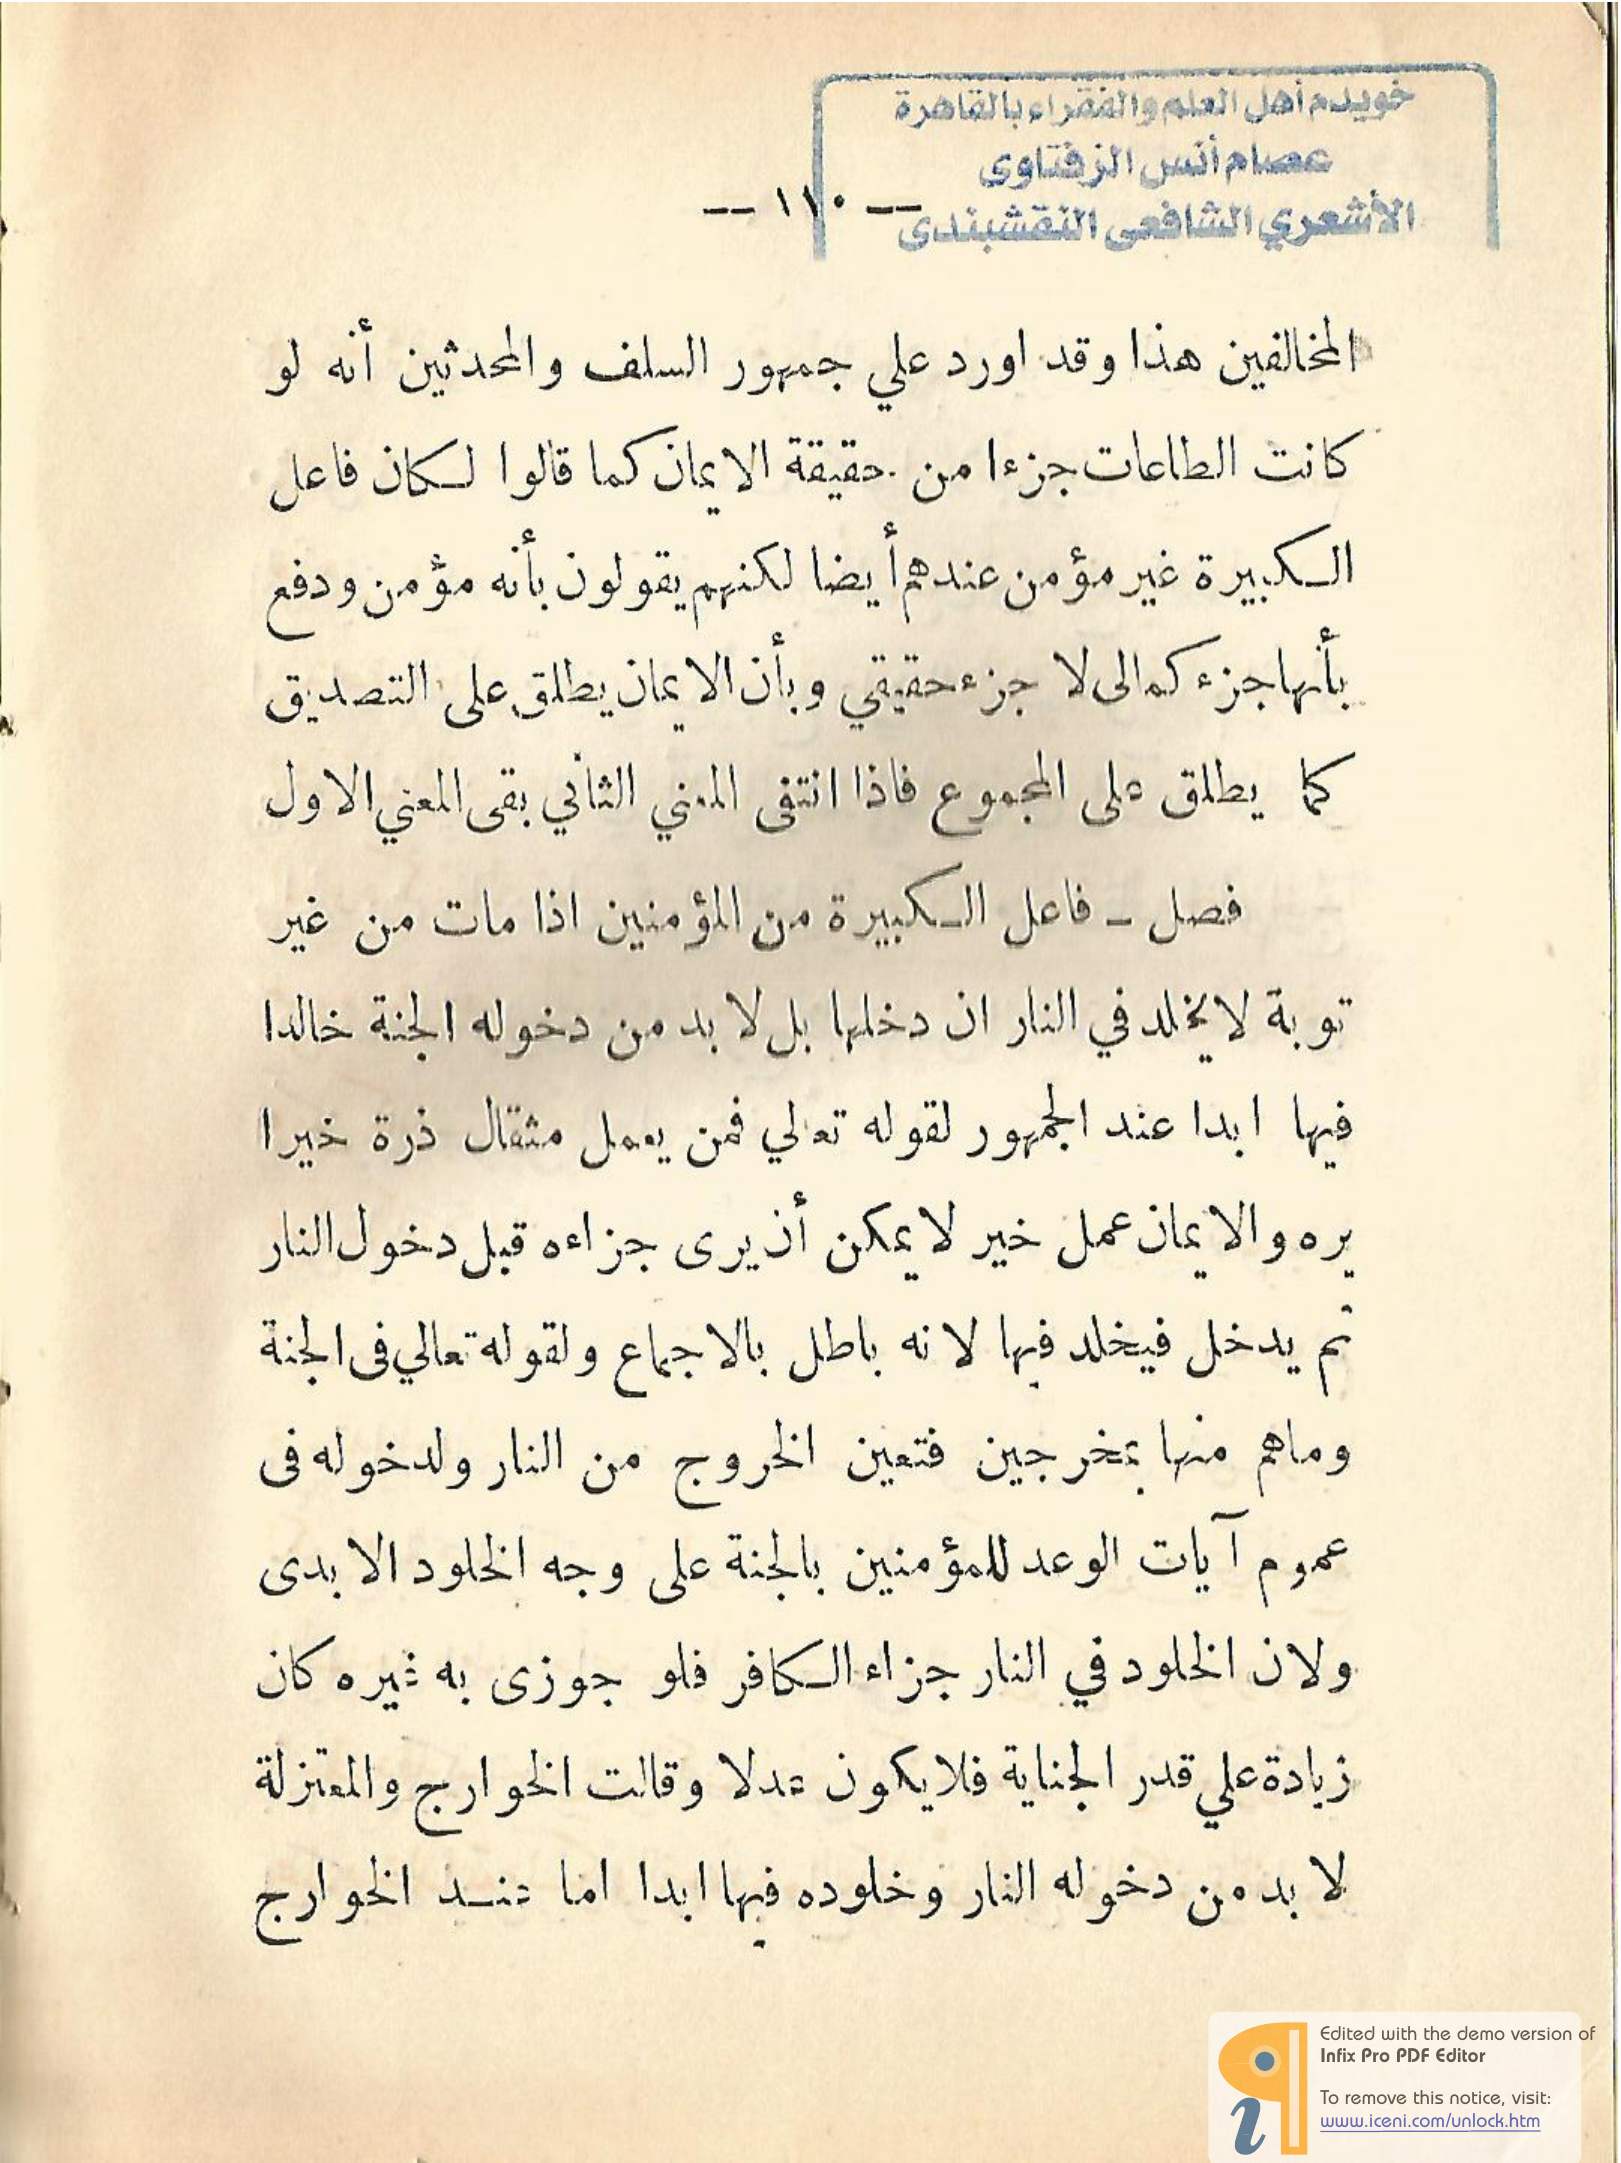 خويدم أهل العلم والفقراء بالقاهرة
عصام أنس الزفتاوى
الأشعري الشافعى النقشبندى
— ١١٠ —
المخالفين هذا وقد اورد علي جمهور السلف والمحدثين أنه لو
كانت الطاعات جزءا من حقيقة الايمان كما قالوا لكان فاعل
الكبيرة غير مؤمن عندهم أيضا لكنهم يقولون بأنه مؤمن ودفع
بأنها جزء كمالى لا جزء حقيقي وبأن الايمان يطلق على التصديق
كما يطلق على المجموع فاذا انتفى المعني الثاني بقى المعني الاول
فصل ـ فاعل الكبيرة من المؤمنين اذا مات من غير
توبة لا يخلد في النار ان دخلها بل لا بد من دخوله الجنة خالدا
فيها ابدا عند الجمهور لقوله تعالي فمن يعمل مثقال ذرة خيرا
يره والايمان عمل خير لا يمكن أن يرى جزاءه قبل دخول النار
ثم يدخل فيخلد فيها لانه باطل بالاجماع ولقوله تعالي فى الجنة
وماهم منها بمخرجين فتعين الخروج من النار ولدخوله فى
عموم آيات الوعد للمؤمنين بالجنة على وجه الخلود الابدى
ولان الخلود في النار جزاء الكافر فلو جوزى به غيره كان
زيادة علي قدر الجناية فلا يكون عدلا وقالت الخوارج والمعتزلة
لا بد من دخوله النار وخلوده فيها ابدا اما عند الخوارج
Edited with the demo version of
Infix Pro PDF Editor
To remove this notice, visit:
www.iceni.com/unlock.htm